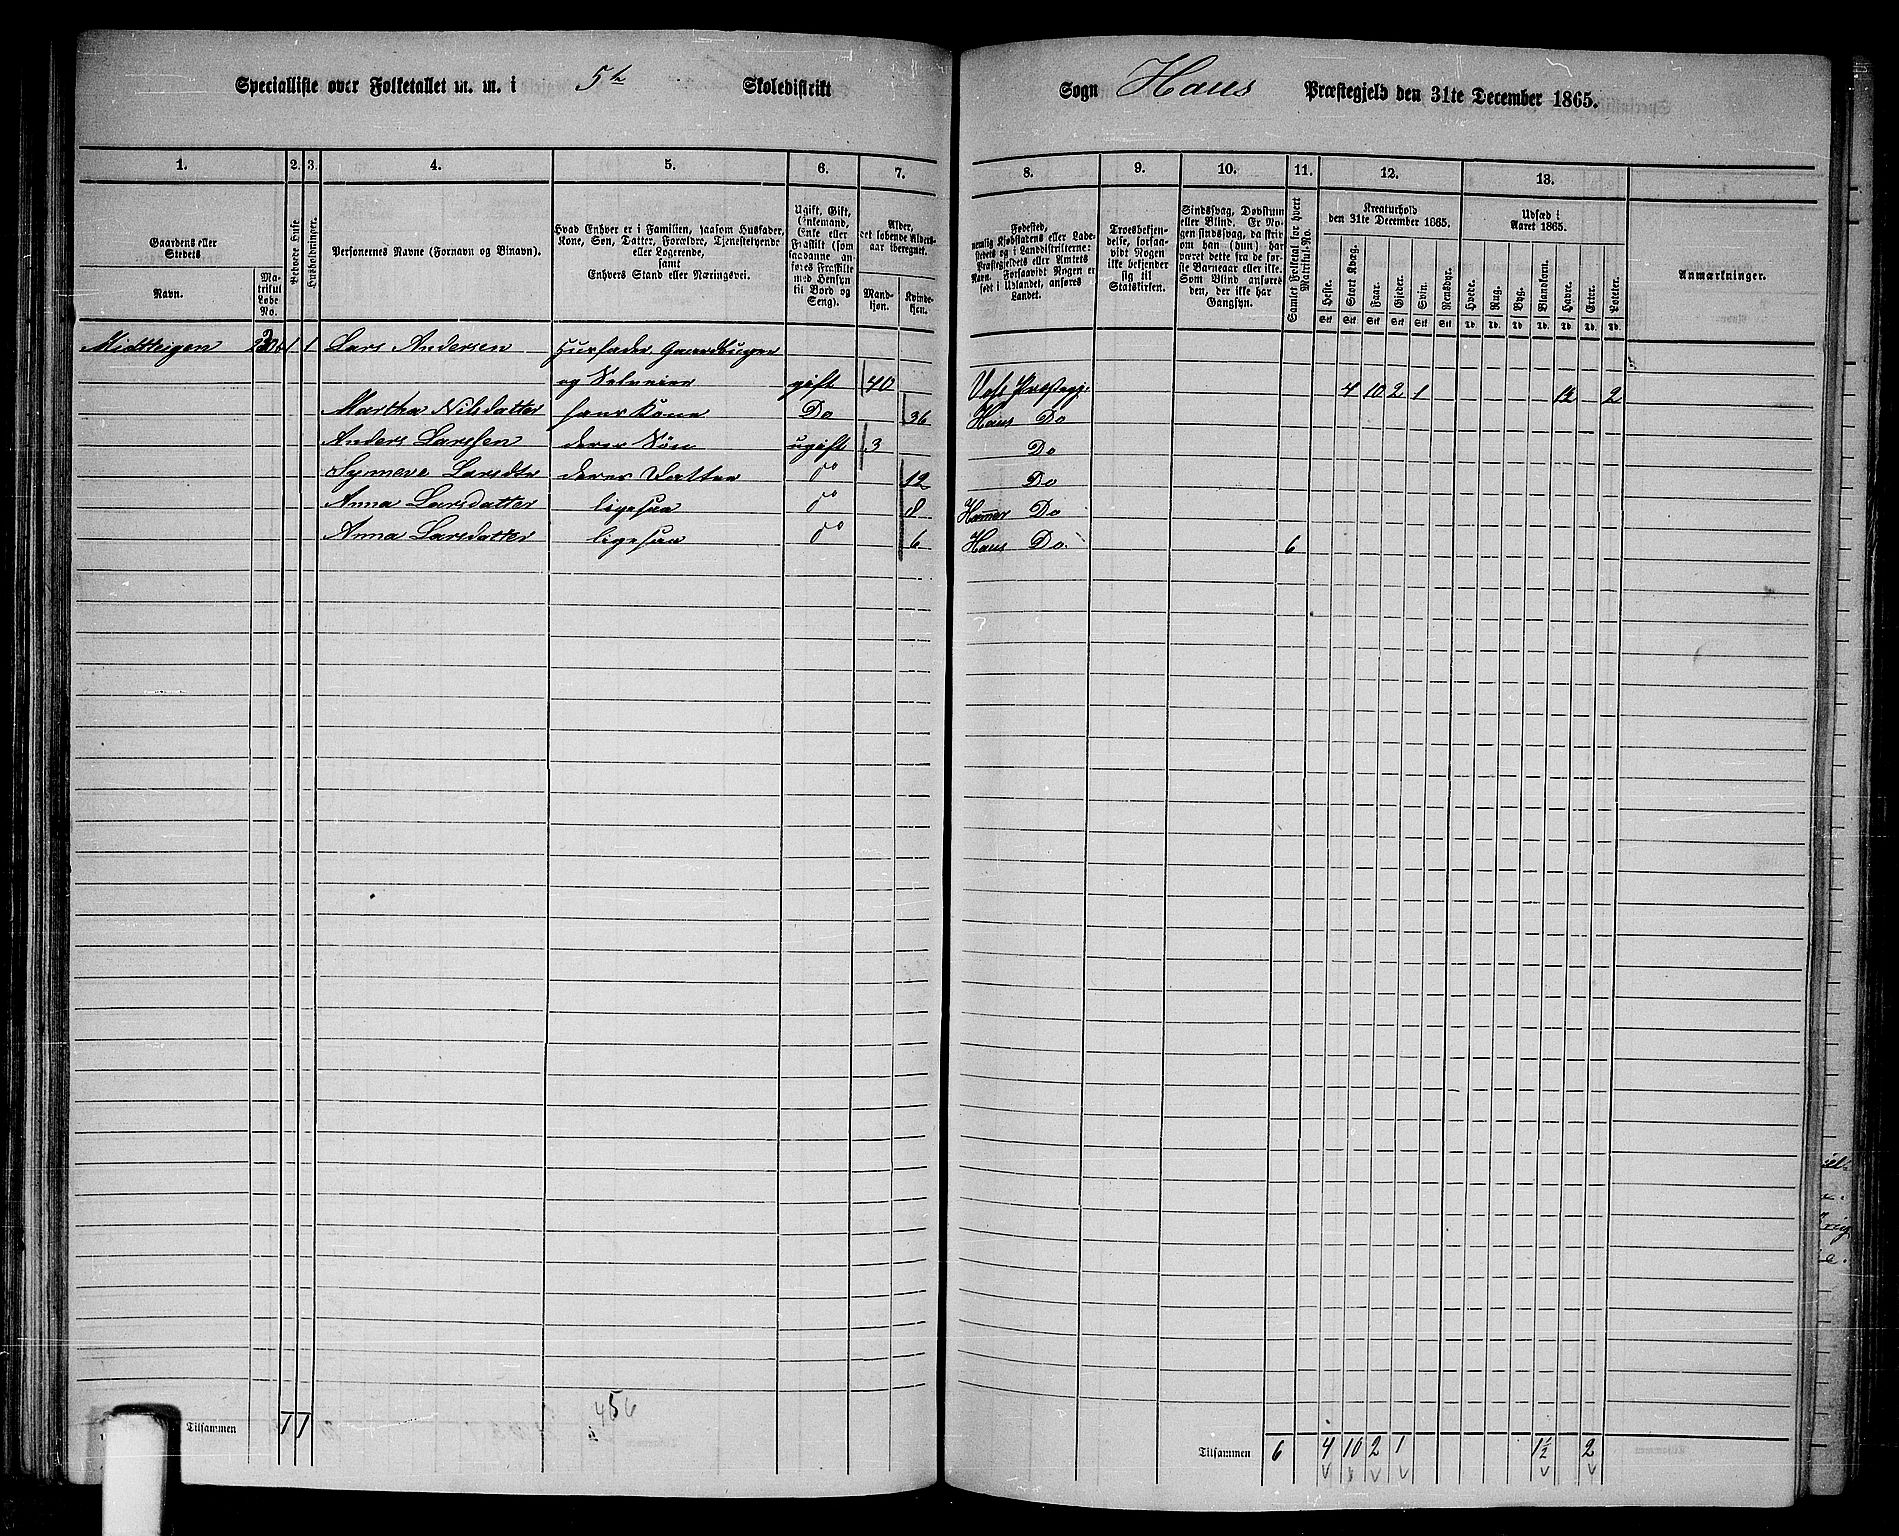 Specialliste over Folketallet m. m. i 5te Skoledistrikt
Sogn Haus Præstegjeld den 31te December 1865.
1. 2. 3. 4. 5. 6. 7.
8. 9. 10. 11. 12. 13.
Gaardens eller Stedets
Navn.
Matrikul Løbe-No.
Beboede Huse
Husholdninger.
Personernes Navne (Fornavn og Binavn).
Hvad Enhver er i Familien, saasom Husfader,
Kone, Søn, Datter, Forældre, Tjenestetyende
eller Logerende,
samt
Enhvers Stand eller Næringsvei.
Ugift, Gift,
Enkemand,
Enke eller
Fraskilt (som
saadanne an-
føres Fraskilte
med Hensyn
til Bord og
Seng).
Alder,
det løbende Alders-
aar iberegnet.
Mand-
kjøn.
Kvinde-
kjøn.
Fødested,
nemlig Kjøbstadens eller Lade-
stedets og i Landdistrikterne:
Præstegjeldets eller Amtets
Navn. Forsaavidt Nogen er
født i Udlandet, anføres
Landet.
Troesbekjen-
delse, forsaa-
vidt Nogen
ikke bekjender
sig til
Statskirken.
Sindssvag, Døvstum
eller Blind. Er No-
gen sindssvag, anføres
Som Blind anføres
den, der ikke har
Gangsyn.
Samlet Folketal for hvert Matrikul-No.
Kreaturhold
den 31te December 1865.
Heste. Stort Kvæg. Faar. Gjeder. Svin. Rensdyr.
Udsæd i
Aaret 1865.
Hvede. Rug. Byg. Blandkorn. Havre. Erter. Poteter.
Anmærkninger.
Stk Stk Stk Stk Stk Stk Td. Td. Td. Td. Td. Td. Td.
1 1 Lars Andersen Husfader, Gaardbruger
og Selveier gift 40 Præstegj. 4 10 2 1 2
Martha Nilsdatter hans Kone Do 36 Haus Do
Anders Larssen deres Søn ugift 3 Do
Larsdtr deres Datter do 12 Do
Anna Larsdatter ligesaa do 8 Hammer Do
Anna Larsdatter ligesaa do 6 Haus Do. 6
456
Tilsammen 1 1
Tilsammen 6 4 10 2 1 1½ 2